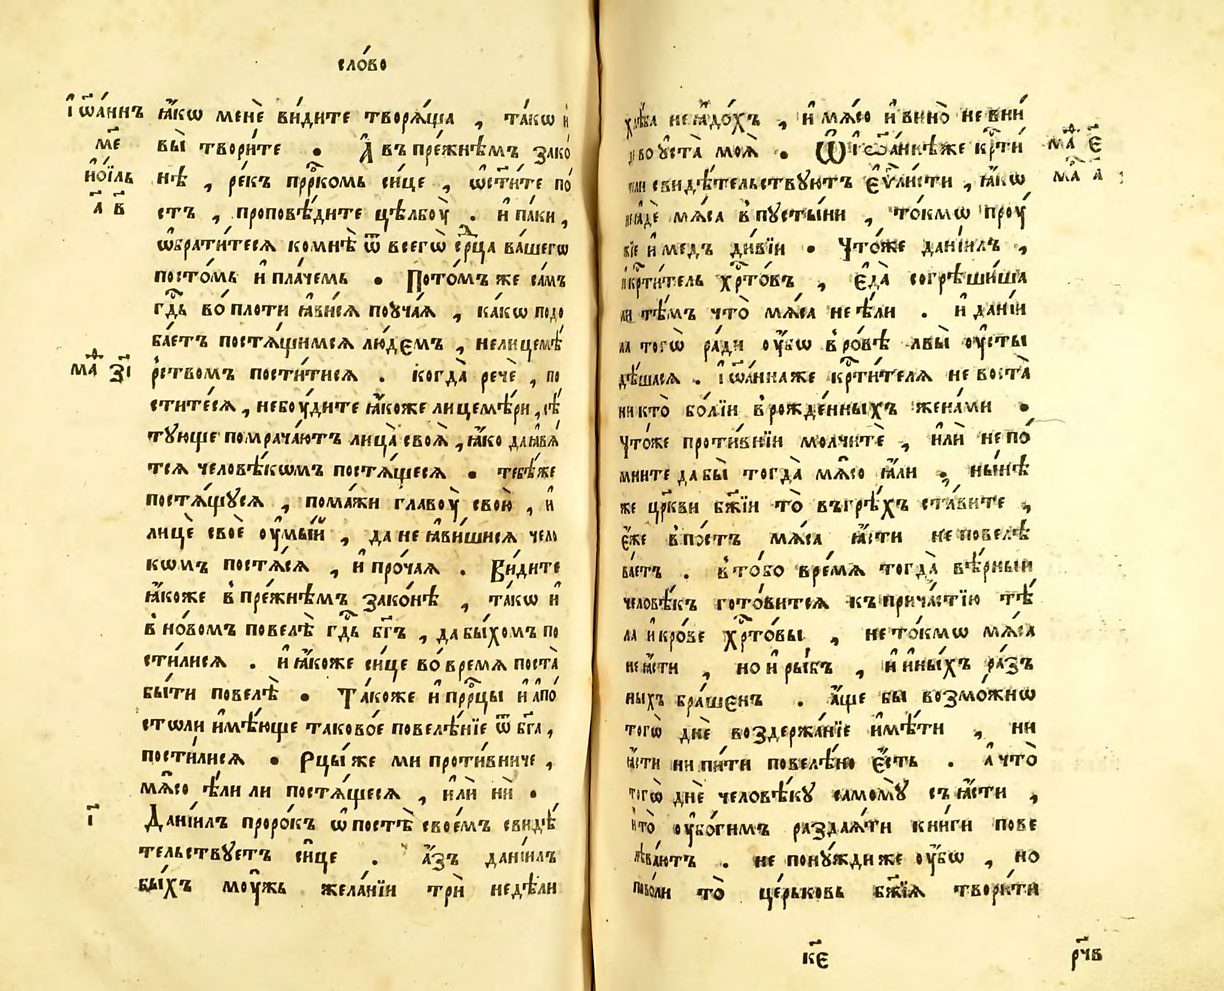 сло́во
І҆ѡа́ннъ
ꙗ҆́кѡ менѐ ви́дите творѧ́ща , та́кѡ и҆
вы̀ твори́те . А҆ въ пре́жнѣмъ зако
нѣ , ре́къ прⷪ҇ркомь си́це , ѡ҆сти́те по́
стъ , проповѣ́дите цѣлбоу̀ . и҆ па́ки ,
ѡ҆брати́теся комнѣ̀ ѿ всегѡ̀ срⷣца ва́шегѡ
посто́мь и҆ пла́чемь . Пото́мъ же са́мъ
гдⷭ҇ь во́ плоти ꙗ҆ви́ся поуча́ѧ , ка́кѡ подо
ба́етъ постѧ́щимсѧ лю́дємъ , нелицемѣ́
рствомъ пости́тисѧ . когда̀ речѐ , по
стите́сѧ , небоу́дите ꙗ҆́коже лицемѣ́ри , сѣ́
тующе помрача́ютъ лица̀ своѧ̀ , ꙗ҆́ко да ꙗ҆вѧ́
тсѧ человѣ́кѡмъ постѧ́щеся . тебѣ́же
постѧ́щусѧ , пома́жи главоу̀ свою̀ , и҆
лицѐ своѐ оу҆мы́й , да не ꙗ҆ви́шися чело
кѡмъ постѧ́сѧ , и҆ про́чаѧ . Ви́дите
ꙗ҆́коже в пре́жнѣмъ зако́нѣ , та́кѡ и҆
в но́вомъ повелѣ̀ гдⷭ҇ь бг҃ъ , да бы́хомъ по
сти́лисѧ . и҆ ꙗ҆́коже си́це во́ времѧ поста̀
бы́ти повелѣ̀ . Та́коже и҆ прⷪ҇рцы и҆ апо́
стѡли и҆мѣ́юще таково́е повелѣ́нїе ѿ бг҃а ,
пости́лисѧ . Рцы́ же ми проти́вниче ,
мѧ́со ѣ҆́ли ли постѧ́щесѧ , и҆лѝ нѝ .
Данїи́лъ проро́къ ѡ҆ постѣ̀ свое́мъ свидѣ́
тельствуетъ си́це . а҆́зъ данїи́лъ
бы́хъ моу́жь жела́нїи трѝ недѣ́ли
І҃
хлѣ́ба не ꙗ҆до́хъ , и҆ мѧ́со и҆ вино̀ не вни
до во оу҆ста̀ моѧ̀ . Ѿ і҆ѡа́ннѣже крⷭ҇ти
тели свидѣ́тельствуютъ є҆ѵⷢ҇листи , ꙗ҆́кѡ
мѧ́са в пусты́ни , то́кмѡ проу́
жїе и҆ ме́дъ ди́вїи . Что́же данїи́лъ ,
и҆ крⷭ҇ти́тель хрⷭ҇то́въ , є҆да̀ согрѣши́ша
ли тѣ́мъ что̀ мѧ́са не ѣ҆́ли . и҆ данїи́
ла тогѡ̀ ра́ди оу҆́бѡ в ро́вѣ львы̀ оу҆сты
дѣ́шасѧ . і҆ѡа́ннаже крⷭ҇ти́телѧ не воста̀
никто̀ бо́лїи в рожде́нныхъ жена́ми .
Что́же проти́внїи молчитѐ , и҆лѝ не по́
мните да бы̀ тогда̀ мѧ́со ꙗ҆́ли , ны́нѣ
же црⷪ҇кви бж҃їи то̀ въ грѣ́хъ ста́вите ,
є҆́же в по́стъ мѧ́са ꙗ҆́сти не повелѣ
ва́етъ . в то́бо вре́мѧ тогда̀ вѣ́рный
человѣ́къ гото́витсѧ къ прича́стїю тѣ́
ла и҆ кро́ве хрⷭ҇то́вы , не то́кмѡ мѧ́са
не ꙗ҆́сти , но и҆ ры́бъ , и҆ и҆ны́хъ ра́з
ныхъ бра́шєнъ . а҆́ще бы возмо́жнѡ
тогѡ̀ днѐ воздержа́нїе и҆мѣ́ти , ни
ꙗ҆́сти ни пи́ти повелѣ́но є҆́сть . а҆ что̀
тогѡ̀ днѐ человѣ́ку самому̀ съꙗ҆́сти ,
и҆ то̀ оу҆бо́гимъ раздаѧ́ти кни́ги пове
лѣва́ютъ . не пону́жди же оу҆́бѡ , но
пово́ли то̀ це́рьковь бж҃їѧ твори́ти
к҃є
р҃чв